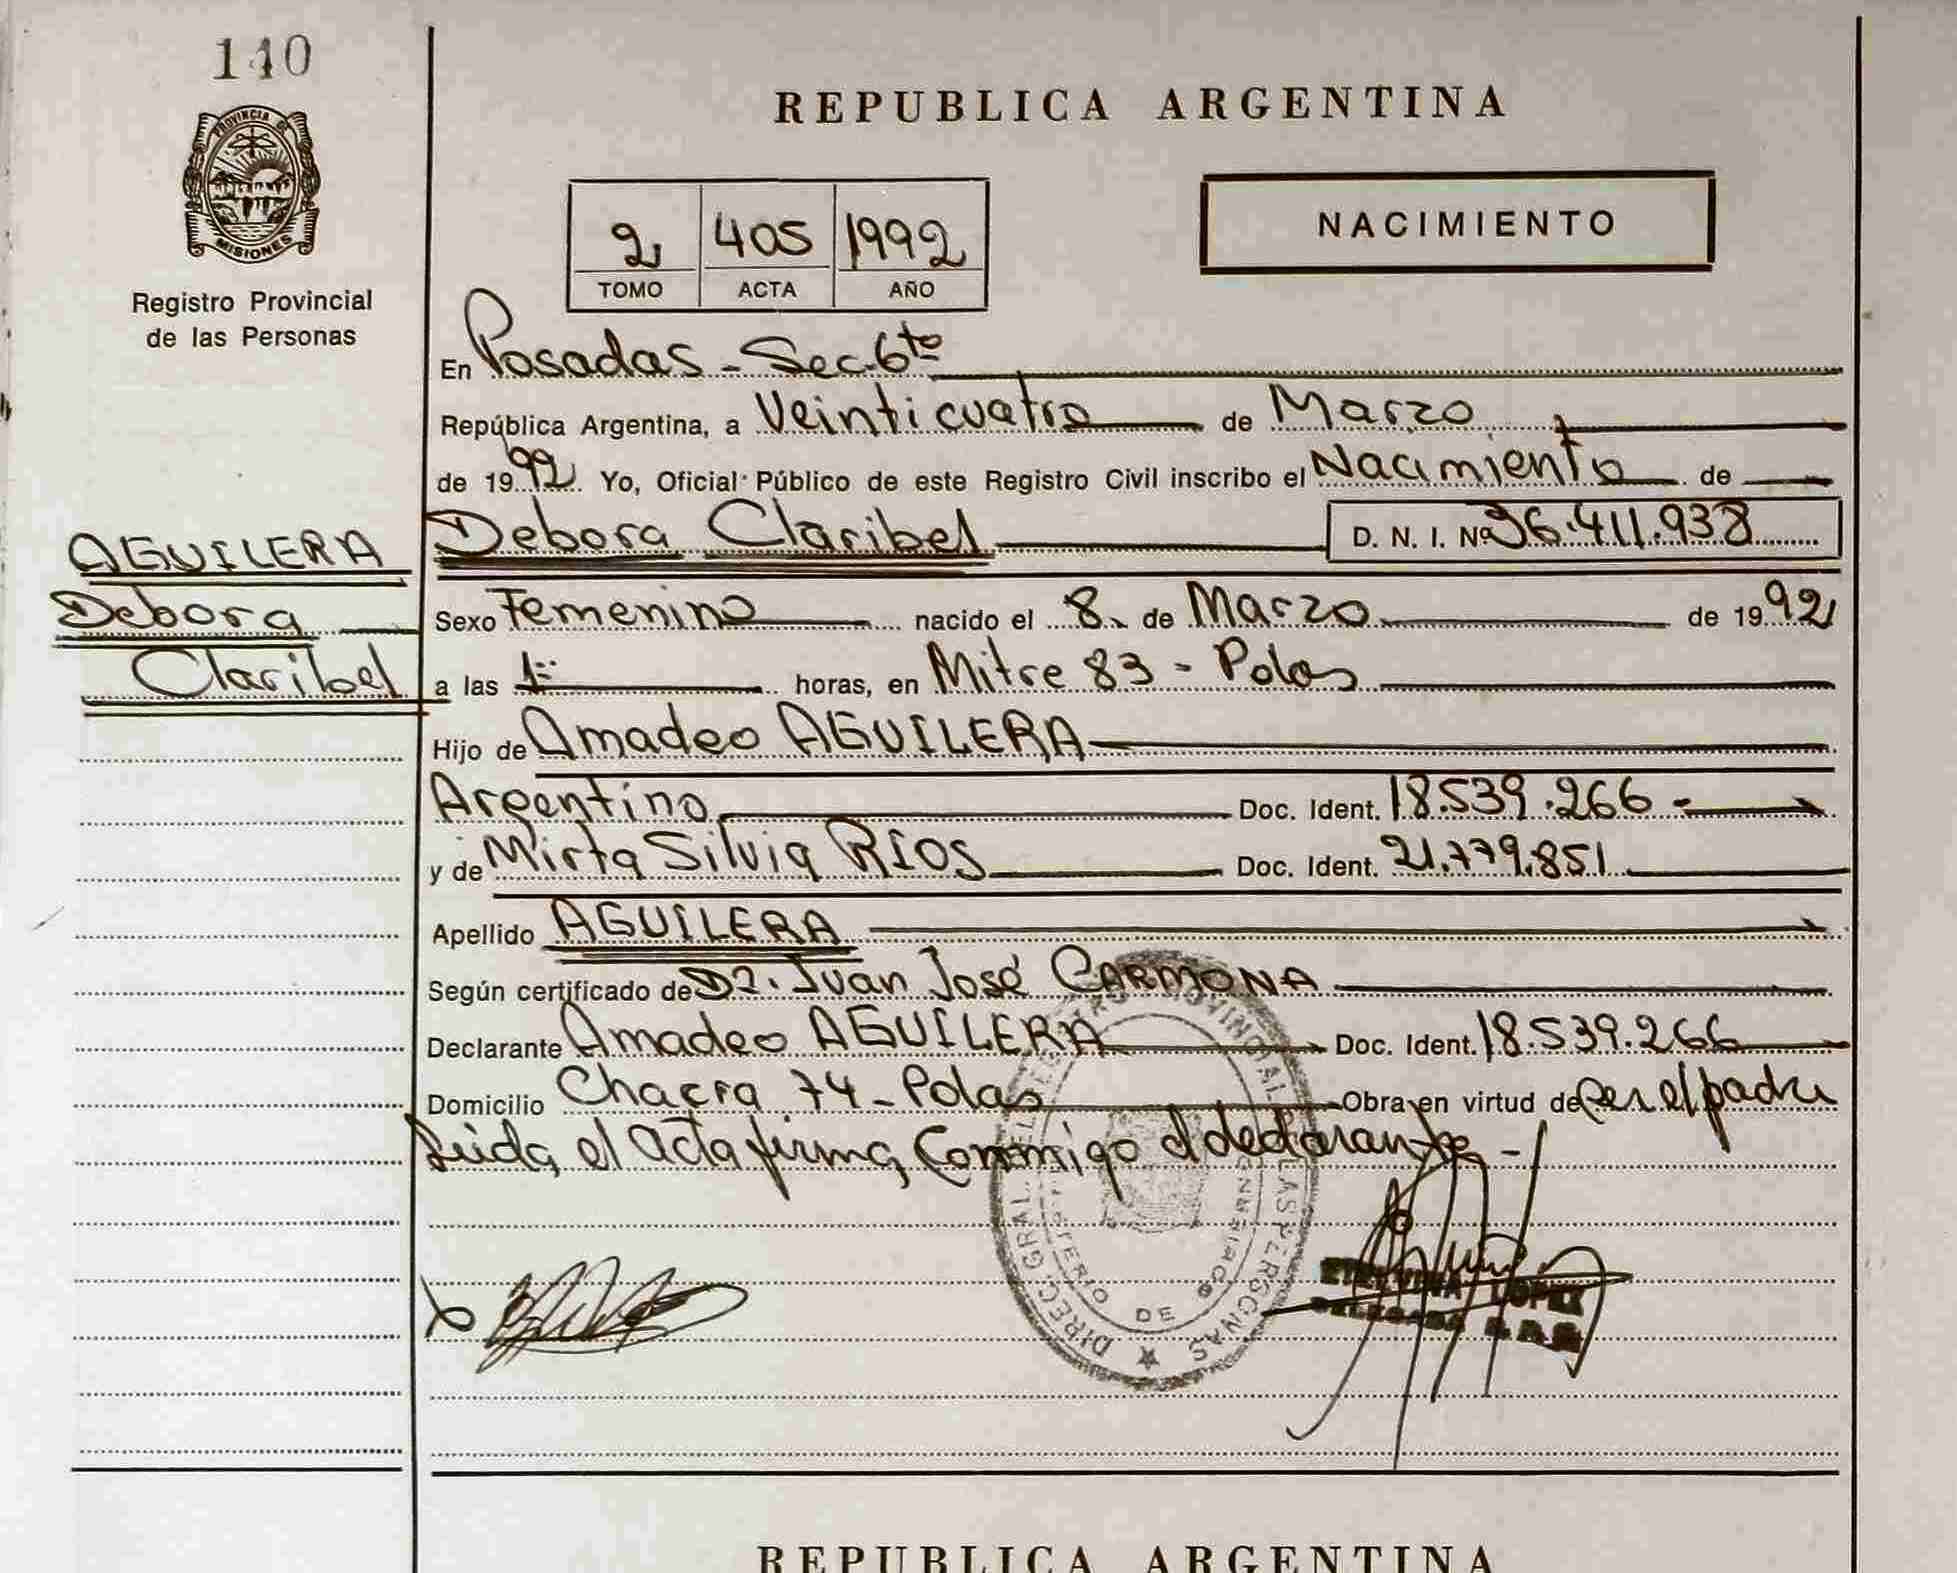 140
PROVINCIA DE
MISIONES
Registro Provincial
de las Personas
REPUBLICA ARGENTINA
2 405 1992
TOMO ACTA AÑO
NACIMIENTO
En Posadas - Sec. 6ta
República Argentina, a Veinticuatro de Marzo
de 1992 Yo, Oficial Público de este Registro Civil inscribo el Nacimiento de
Debora Claribel D. N. I. Nº 36.411.938
AGUILERA
Debora
Claribel
Sexo Femenino nacido el 8 de Marzo de 1992
a las 1 horas, en Mitre 83 - Pdas
Hijo de Amadeo AGUILERA
Argentino Doc. Ident. 18.539.266 -
y de Mirta Silvia RIOS Doc. Ident. 21.779.851
Apellido AGUILERA
Según certificado de Dr. Juan José CARMONA
Declarante Amadeo AGUILERA Doc. Ident. 18.539.266
Domicilio Chacra 74 - Pdas Obra en virtud de ser el padre
Leida el Acta firma Conmigo el declarante -
DIREC. GRAL. DE LAS PERSONAS
DE
LOPEZ
REPUBLICA ARGENTINA